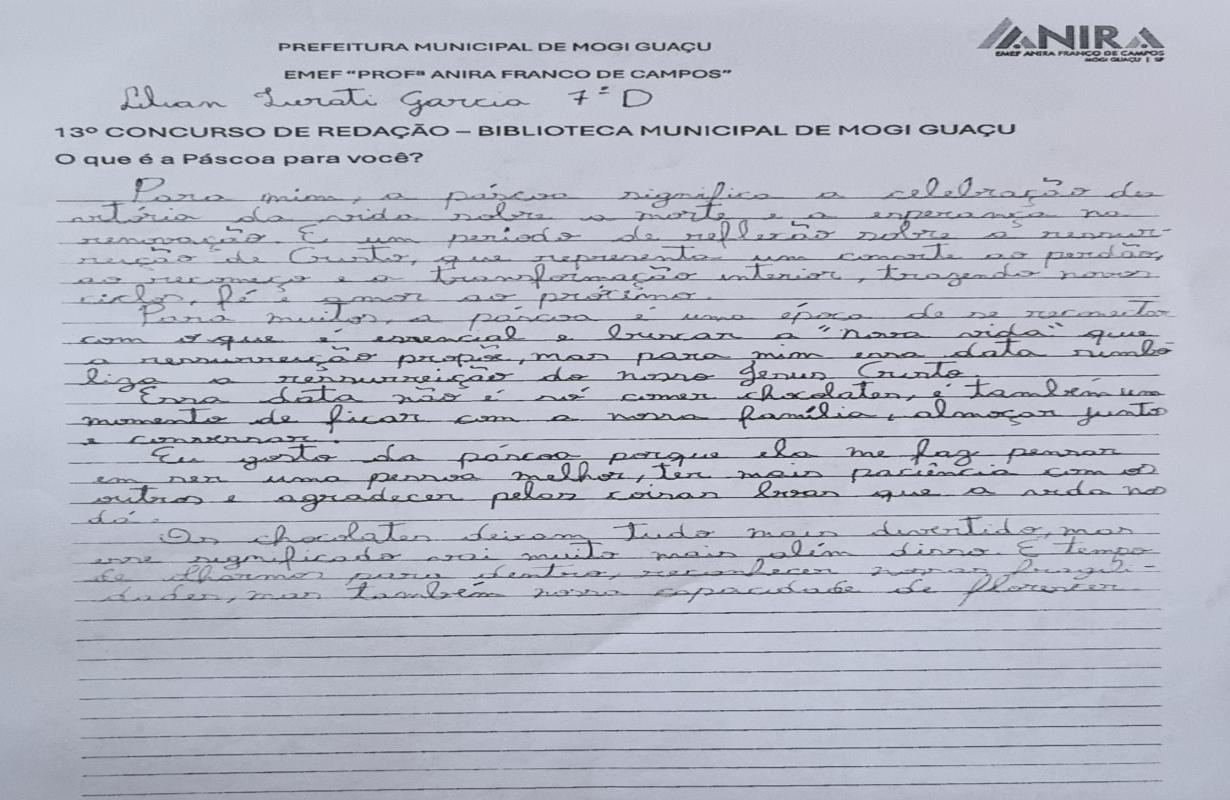 ANIRA
EMEF ANIRA FRANCO DE CAMPOS
MOGI GUAÇU | SP
PREFEITURA MUNICIPAL DE MOGI GUAÇU
EMEF “PROFª ANIRA FRANCO DE CAMPOS”
Lilian Zurati Garcia 7ª D
13º CONCURSO DE REDAÇÃO – BIBLIOTECA MUNICIPAL DE MOGI GUAÇU
O que é a Páscoa para você?
Para mim, a páscoa significa a celebração da
vitória da vida sobre a morte e a esperança na
renovação. É um período de reflexão sobre a ressur-
reição de Cristo, que representa um convite ao perdão,
ao recomeço e a transformação interior, trazendo novos
ciclos, fé e amor ao próximo.
Para muitos, a páscoa é uma época de se reconectar
com o que é essencial e buscar a "nova vida" que
a ressurreição propõe, mas para mim essa data simbo
liza a ressurreição do nosso Jesus Cristo.
Essa data não é só comer chocolates, é também um
momento de ficar com a nossa família, almoçar junto
e conversar.
Eu gosto da páscoa porque ela me faz pensar
em ser uma pessoa melhor, ter mais paciência com os
outros e agradecer pelas coisas boas que a vida nos
dá.
Os chocolates deixam tudo mais divertido, mas
esse significado vai muito mais além disso. É tempo
de olharmos para dentro, reconhecer nossas fragili-
dades, mas também nossa capacidade de florescer.